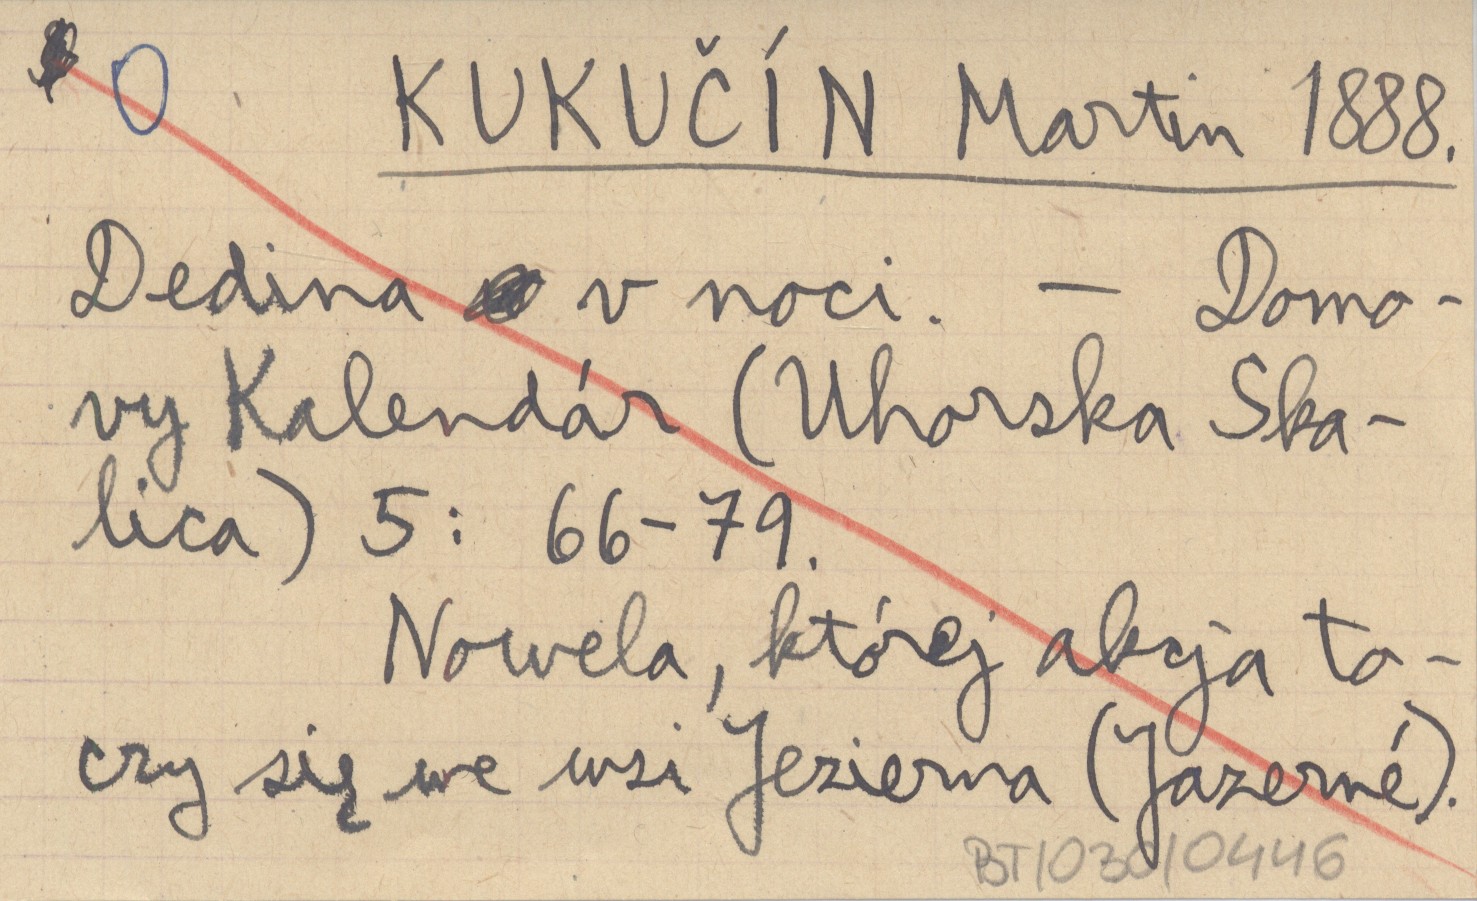 KUKUČÍN Martin 1888.
Dedina v noci. — Domo-
vy Kalendár (Uhorska Ska-
lica) 5: 66-79.
Nowela, której akcja to-
czy się we wsi Jezierna (Jazerné).
BT/030/0446